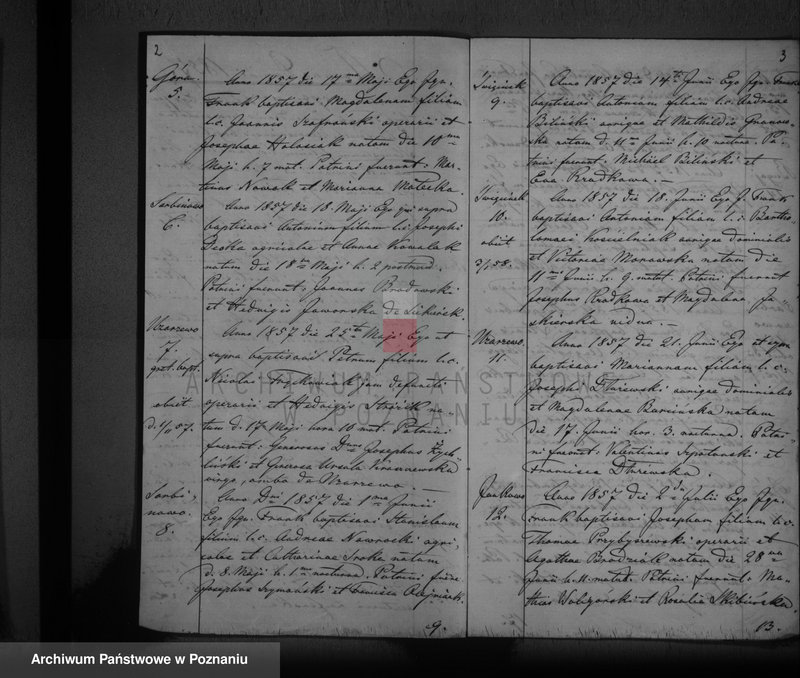 2
Góra
5.
Anno 1857 die 17ma Maji Ego Jgn.
Frank baptisavi Magdalenam filiam
l.c. Joannis Szafranski operarii et
Josephae natam die 10ma
Maji h. 7 mat. Patrini fuerunt: Mar-
tinus Nowak et Marianna Matecka.
6.
Anno 1857 die 18. Maji Ego qui supra
baptisavi Antonium filium l.c. Josephi
agricolae et Annae Kowalak
natum die 18 Maji h. 2 postmed.
Patrini fuerunt: Joannes Brodowski
et Hedvigis Jaworska de
7.
Anno 1857 die 25ta Maji Ego ut
supra baptisavi Petrum filium l.c.
Nicolai jam defuncti
obiit
operarii et Hedvigis na-
tum d. 17 Maji hora 10 mat. Patrini
fuerunt: Generosus Dnus Josephus Zych-
liński et Gnerosa Ursula
virgo, ambo de
8.
Anno Dni 1857 die 1ma Junii
Ego Jgn. Frank baptisavi Stanislaum
filium l.c. Andreae Nawrocki agri-
colae et Catharinae Sroka natum
d. 8. Maji h. 1ma nocturna. Patrini fuere:
Josephus Szymański et Francisca
9.
3
9.
Anno 1857 die 14ta Junii Ego Jgn. Frank
baptisavi Antoniam filiam l.c. Andreae
Biliński aurigae et Mathildis
natam d. 11ma Junii h. 10 noctur. Pa-
trini fuerunt: Michael Biliński et
Eva Prądkowa. —
10.
obiit
3/1 58.
Anno 1857 die 18. Junii Ego J. Frank
baptisavi Antonium filium l.c. Bartho-
lomaei Kościelniak aurigae dominialis
et Victoriae natum die
11ma Junii h. 9. matut. Patrini fuerunt
Josephus Prądkowa et Magdalena Ja-
skierska vidua. —
11.
Anno 1857 die 21. Junii Ego
baptisavi Mariannam filiam l.c.
Josephi Dłużewski aurigae dominialis
et Magdalenae Barcinska natam
die 17. Junii hor. 3. nocturna. Patri-
ni fuerunt: Valentinus et
Francisca Dłużewska.
Jankowo
12.
Anno 1857 die 2da Julii Ego Jgn.
Frank baptisavi Josepham filiam l.c.
Thomae Przybyszewski operarii et
Agathae natam die 28va
Junii h. 11. matut. Patrini fuerunt: Ma-
thias et Rosalia Skibińska.
13.
ARCHIWUM PAŃSTWOWE
W POZNANIU
Archiwum Państwowe w Poznaniu